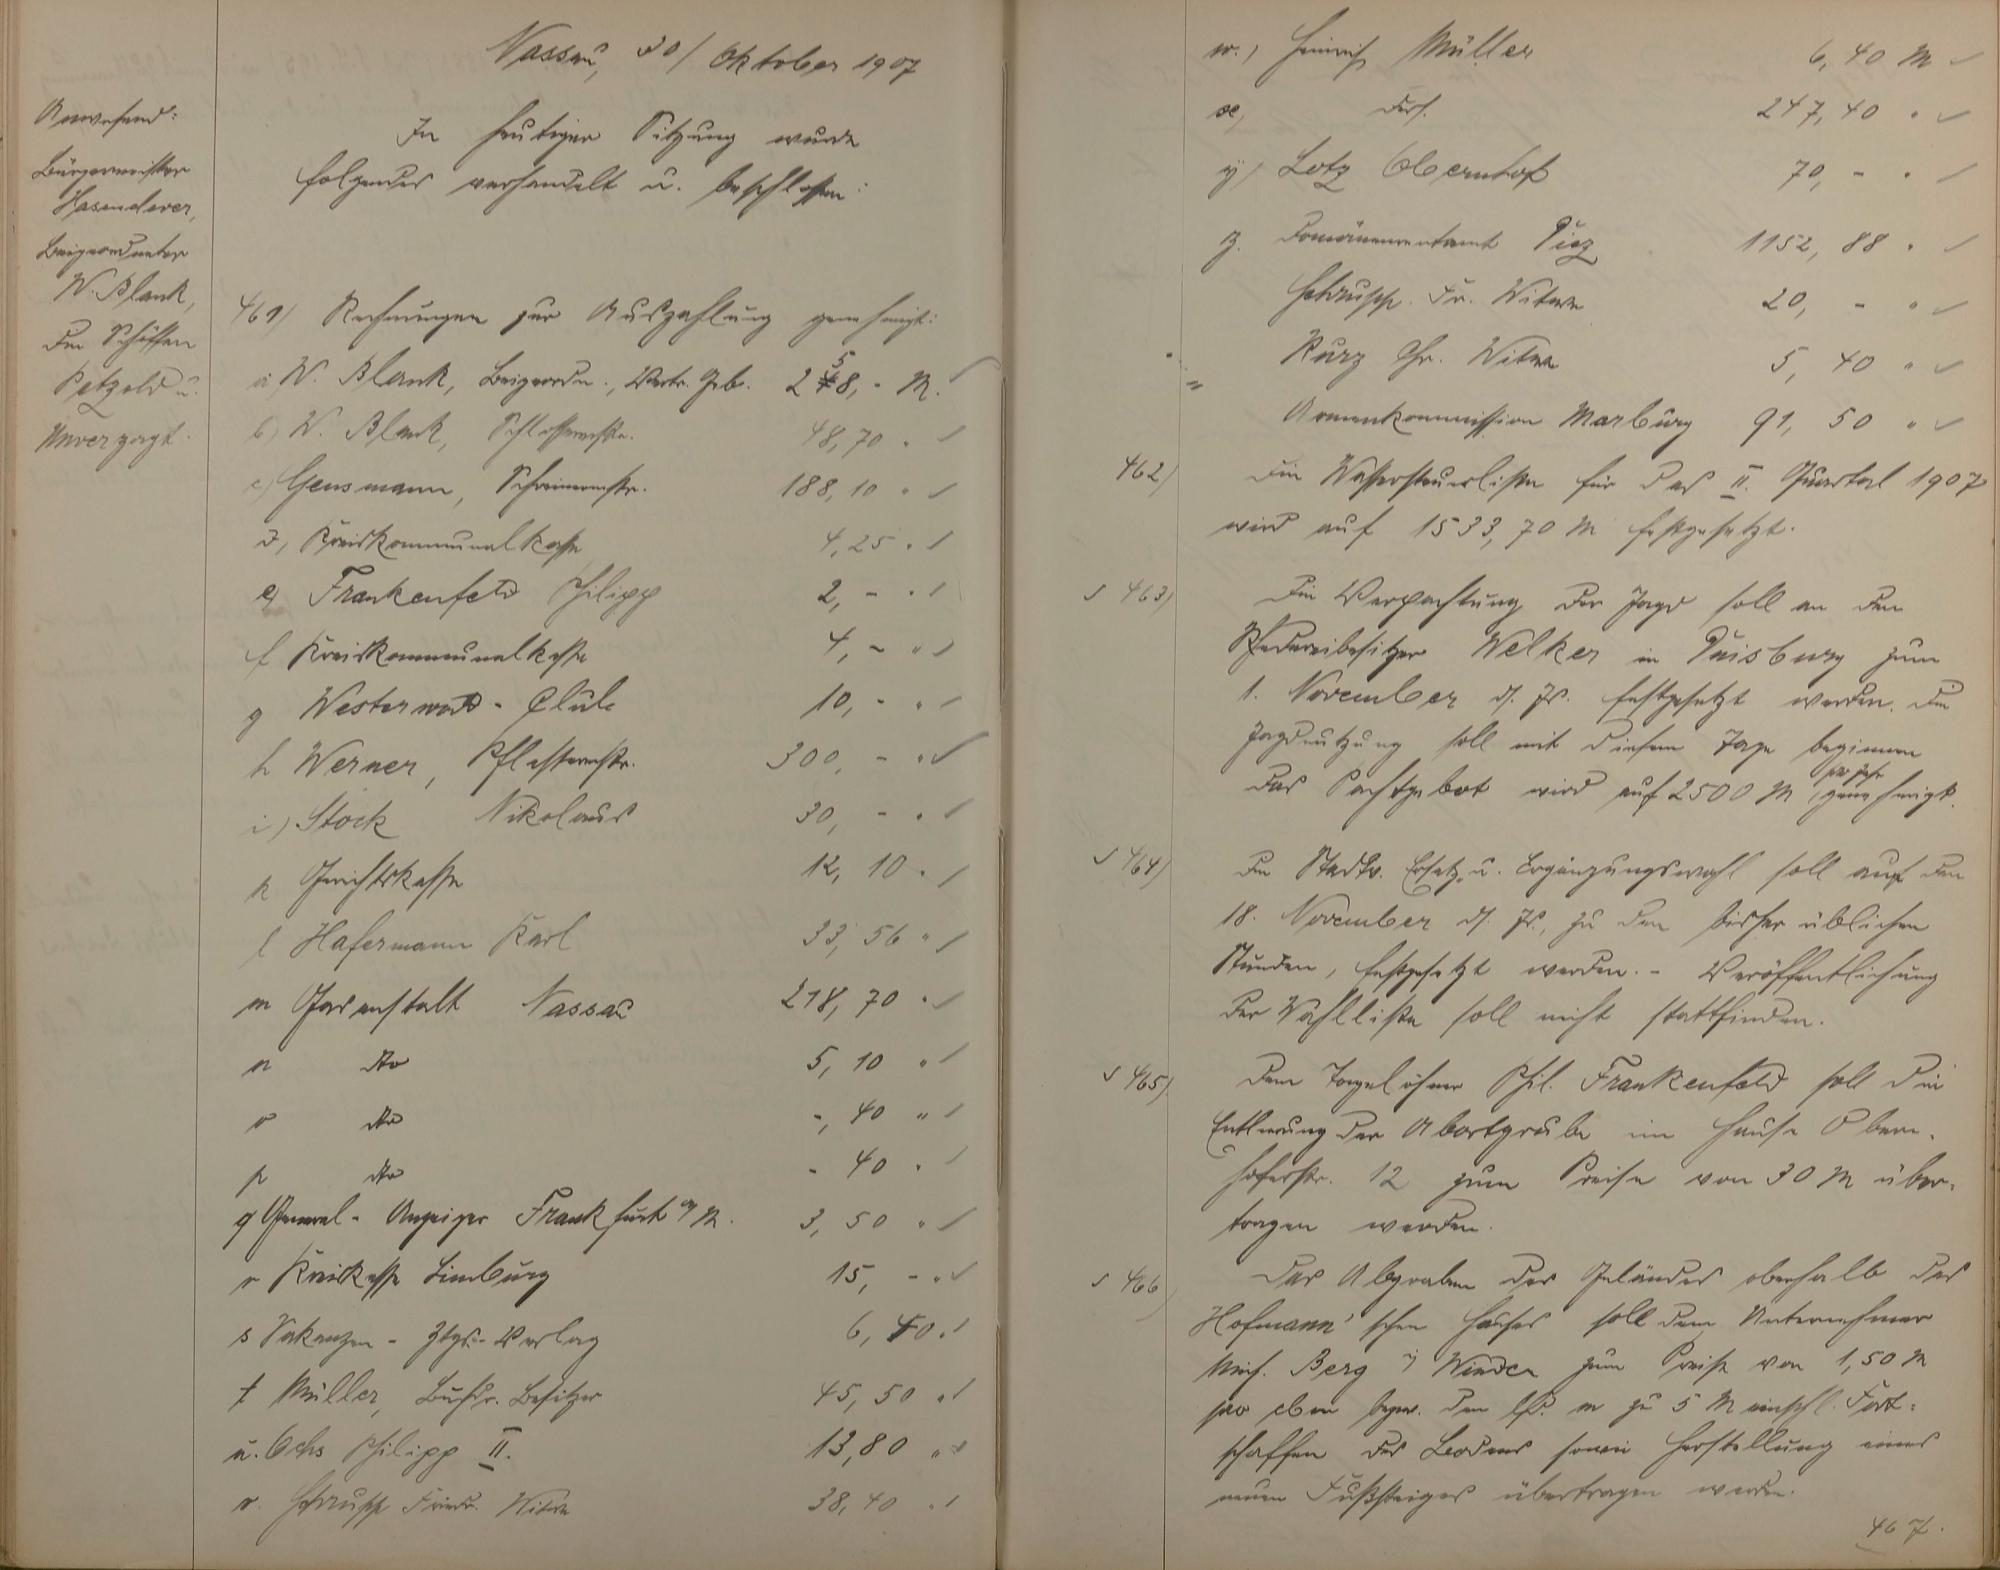 Nassau, 30/ Oktober 1907
Anwesend:
Bürgermeister
Hasenclever,
Beigeordneter
W. Blank,
die Schöffen
Petzold u.
Unverzagt.
In heutiger Sitzung wurde
folgendes verhandelt u. beschlossen:
461) Rechnungen zur Auszahlung genehmigt:
a W. Blank, Beigeordn., Vertr. Geb. 258,- M.
b) W. Blank, Schlossermstr. 48,70 "
c) Gensmann, Schreinermstr. 188,10 "
d, Kreiskommunalkasse 4,25 "
e) Frankenfeld Philipp 2, - "
f Kreiskommunalkasse 4, - "
g Westerwald-Club 10, - "
h Werner, Pflastermstr. 300, - "
i) Stock Nikolaus 30, - "
k Gerichtskasse 12, 10 "
l Hafermann Karl 33, 56 "
m Gasanstalt Nassau 218, 70 "
n dto 5, 10 "
o dto -, 40 "
p dto - 40 "
q General-Anzeiger Frankfurt a/M. 3, 50 "
r Kreiskasse Limburg 15, - "
s Vakanzen-Ztgs.-Verlag 6, 40 "
t Müller, Buchdr. Besitzer 45, 50 "
u. Ochs Philipp II. 13,80 "
v. Friedr. Witwe 38, 40 "
w.) Heinrich Müller 6, 40 M
x, Ders. 247, 40 "
y) Lotz Obernhof 70, - "
z. Domänenrentamt Diez 1152, 88 "
Fr. Witwe 20, - "
Kurz Chr. Witwe 5, 40 "
Armenkommission Marburg 91, 50 "
462) Die Wassersteuerliste für das II. Quartal 1907
wird auf 1533,70 M festgesetzt.
463) Die Verpachtung der Jagd soll an den
Rhedereibesitzer Welker in Duisburg zum
1. November d. Js. festgesetzt werden. Die
Jagdnutzung soll mit diesem Tage beginnen
das Pachtgebot wird auf 2500 M pro Jahr genehmigt.
464) Die Stadtv. Ersatz- u. Ergänzungswahl soll auf den
18. November d. Js., zu den bisher üblichen
Stunden, festgesetzt werden. - Veröffentlichung
der Wahlliste soll nicht stattfinden.
465) Dem Tagelöhner Phil. Frankenfeld soll die
Entleerung der Abortgrube im Hause Obern-
hoferstr. 12 zum Preise von 30 M über-
tragen werden.
466) Das Abgraben des Geländes oberhalb des
Hofmann'schen Hauses soll dem Unternehmer
Mich. Berg i/ Winden zum Preise von 1,50 M
pro cbm bezw. den lfd. m zu 5 M einschl. Fort-
schaffen des Bodens sowie Herstellung eines
neuen Fußsteiges übertragen werden.
467.